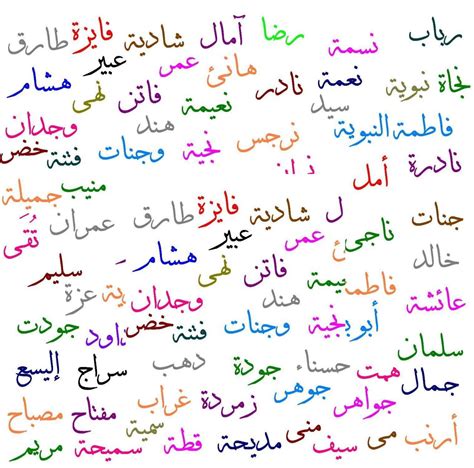 رباب نسمة رضا آمال شادية فايزة طارق
نجاة نبوية نعمة نادر هانئ عمر عبير هشام
فاطمة النبوية سيد نعيمة فاتن نهى وجدان
نادرة أمل نرجس نجية هند وجنات فتنة خضر
منيب جميلة
جنات ناجي ل شادية فايزة طارق عمران تُقى
خالد عمر عبير هشام سليم
عائشة فاطمة يمة فاتن نهى وجدان ية عزة
أبو نجية هند وجنات فتنة خضر داود جودت
سلمان همت حسناء جودة دهب سراج إليسع
جمال جواهر جوهر زمردة غراب مفتاح مصباح
أرنب مي سيف منى مديحة قطة سمية سميحة مريم